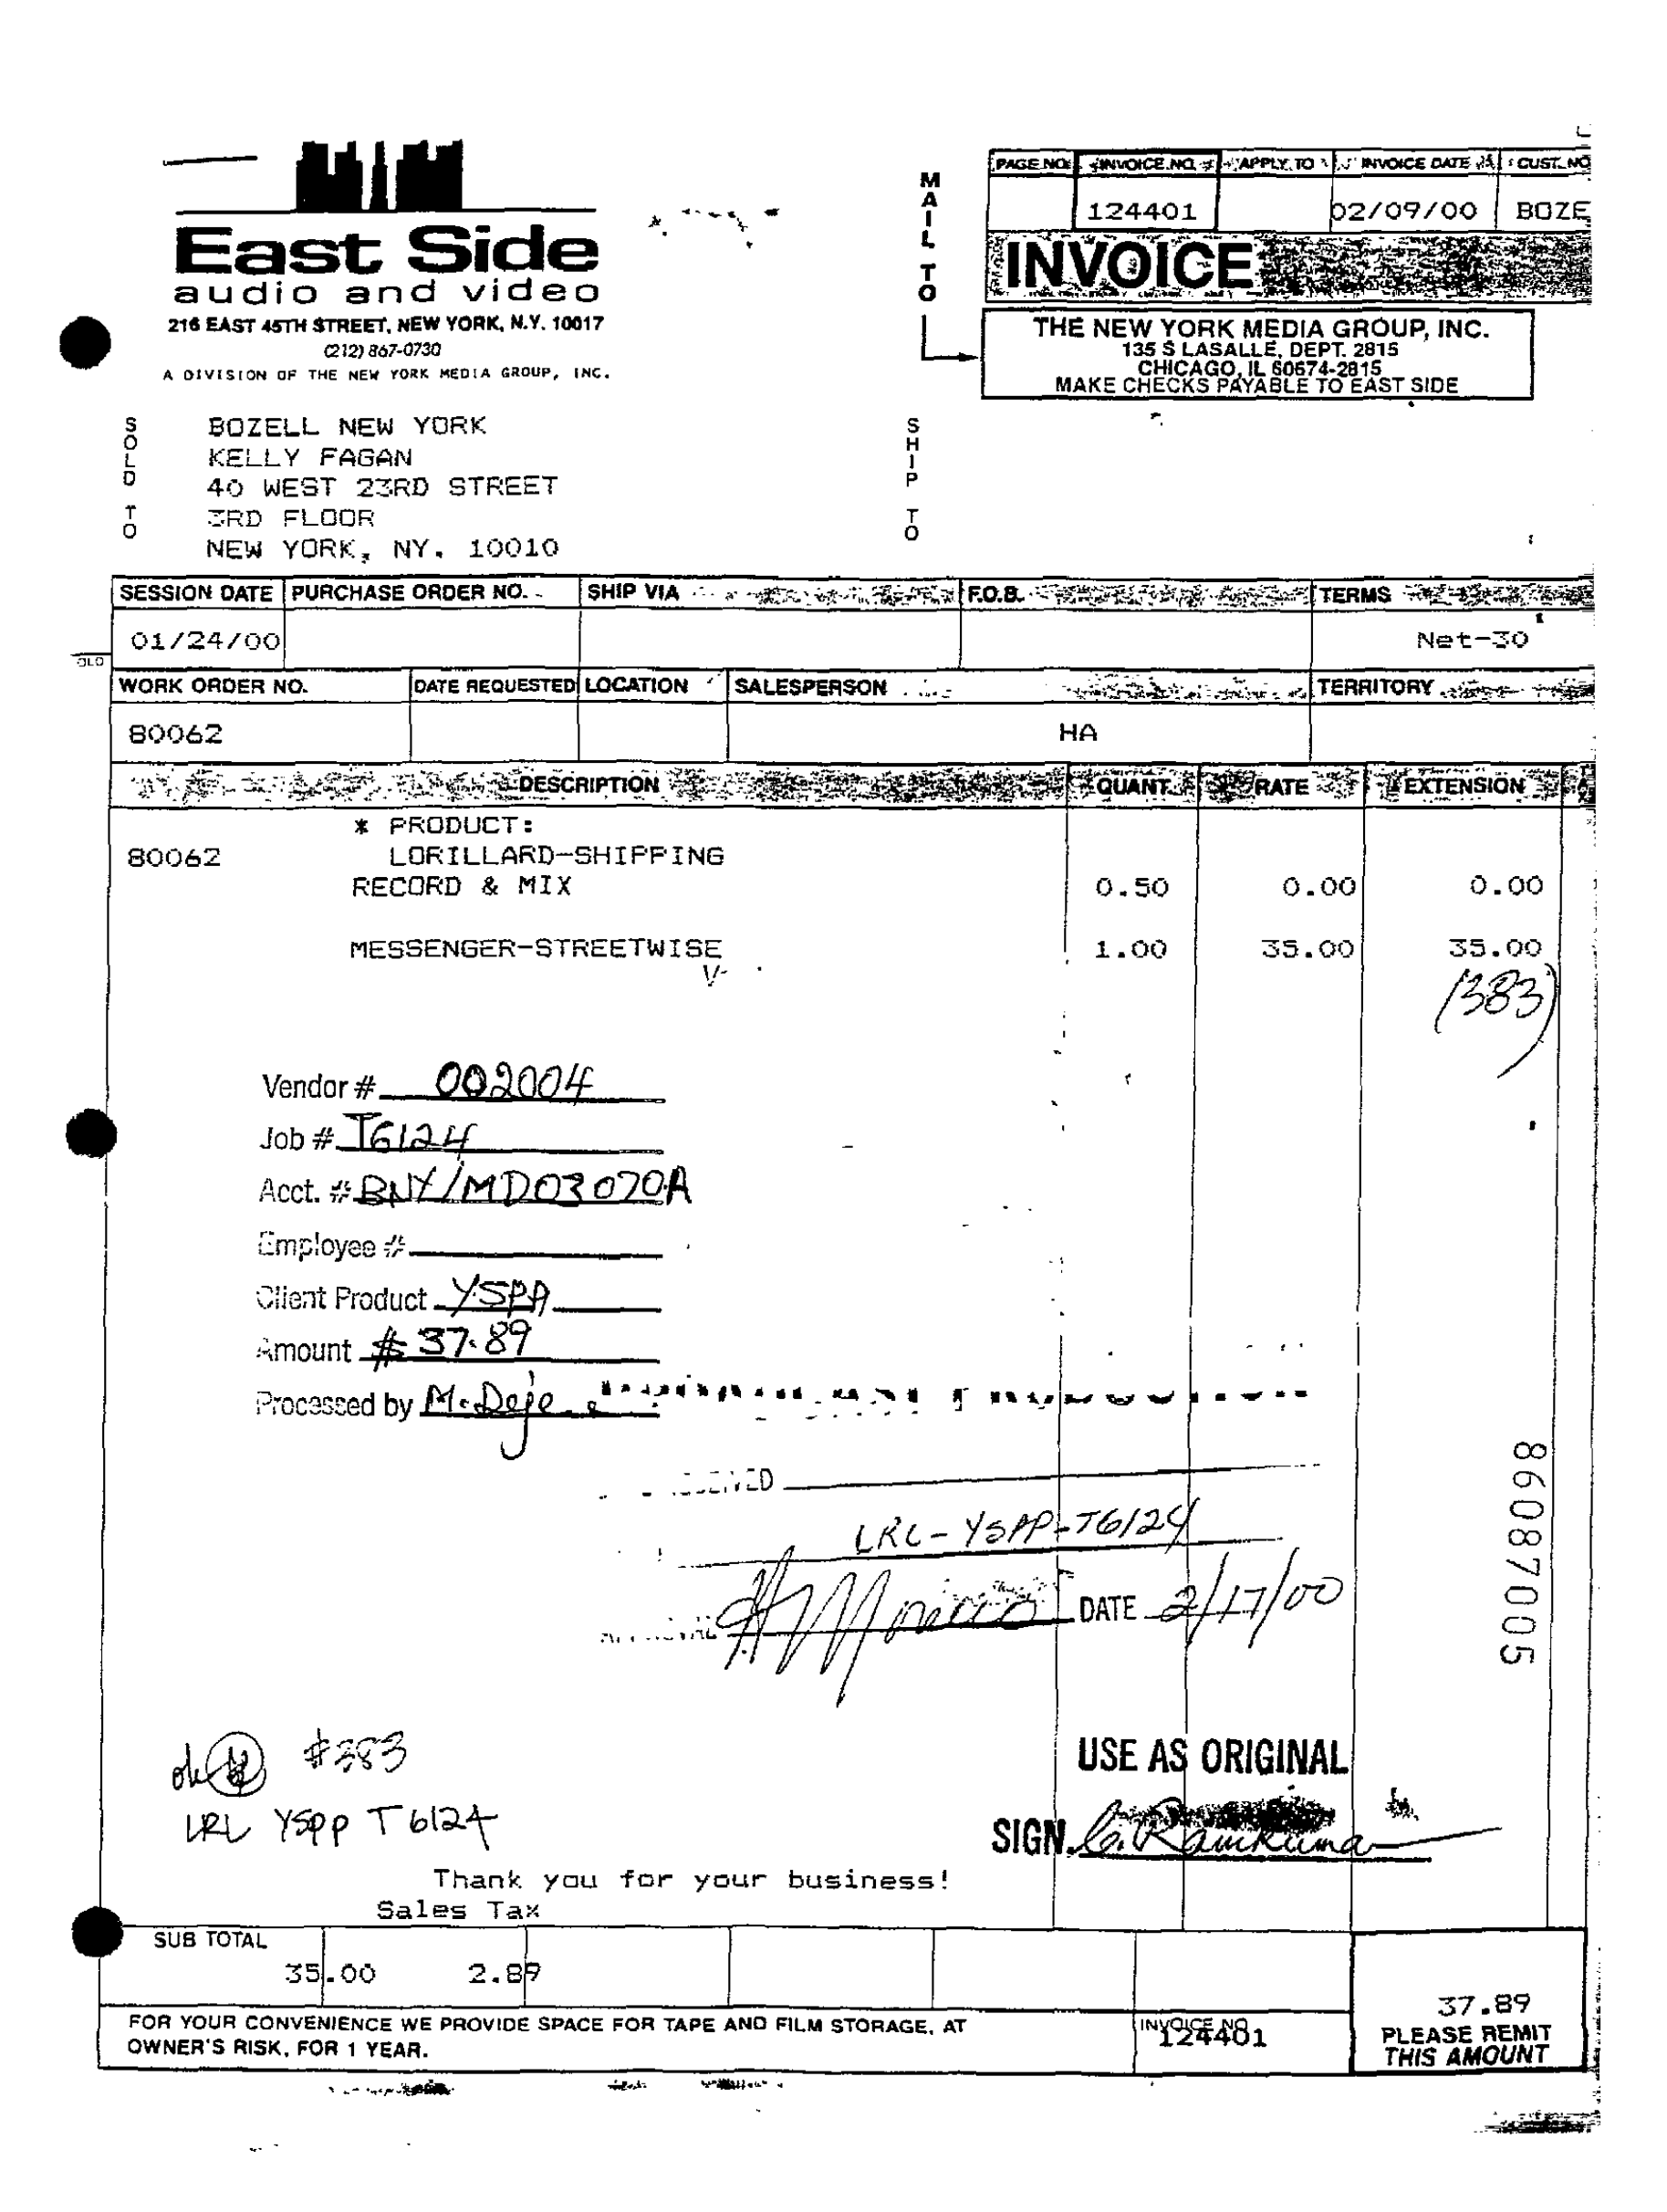 East Side
audio and video
216 EAST 45TH STREET, NEW YORK, N.Y. 10017
(212) 867-0730
A DIVISION OF THE NEW YORK MEDIA GROUP, INC.
MAIL TO
PAGE NO. INVOICE NO. APPLY TO INVOICE DATE CUST. NO
124401 02/09/00 BOZE
INVOICE
THE NEW YORK MEDIA GROUP, INC.
135 S LASALLE, DEPT. 2815
CHICAGO, IL 60674-2815
MAKE CHECKS PAYABLE TO EAST SIDE
SOLD TO
BOZELL NEW YORK
KELLY FAGAN
40 WEST 23RD STREET
3RD FLOOR
NEW YORK, NY. 10010
SHIP TO
SESSION DATE PURCHASE ORDER NO. SHIP VIA F.O.B. TERMS
01/24/00 Net-30
WORK ORDER NO. DATE REQUESTED LOCATION SALESPERSON TERRITORY
80062 HA
DESCRIPTION QUANT. RATE EXTENSION
* PRODUCT:
80062 LORILLARD-SHIPPING
RECORD & MIX 0.50 0.00 0.00
MESSENGER-STREETWISE 1.00 35.00 35.00
(383)
Vendor # 002004
Job # T6124
Acct. # BNY/MD03070A
Employee #
Client Product YSPA
Amount # 37.89
Processed by M. Deje
LRL-YSPP-T6124
APPROVAL DATE 2/17/00
86087005
ok #383
LRL YSPP T6124
USE AS ORIGINAL
SIGN.
Thank you for your business!
Sales Tax
SUB TOTAL
35.00 2.89
37.89
FOR YOUR CONVENIENCE WE PROVIDE SPACE FOR TAPE AND FILM STORAGE, AT
OWNER'S RISK, FOR 1 YEAR.
INVOICE NO.
124401
PLEASE REMIT
THIS AMOUNT